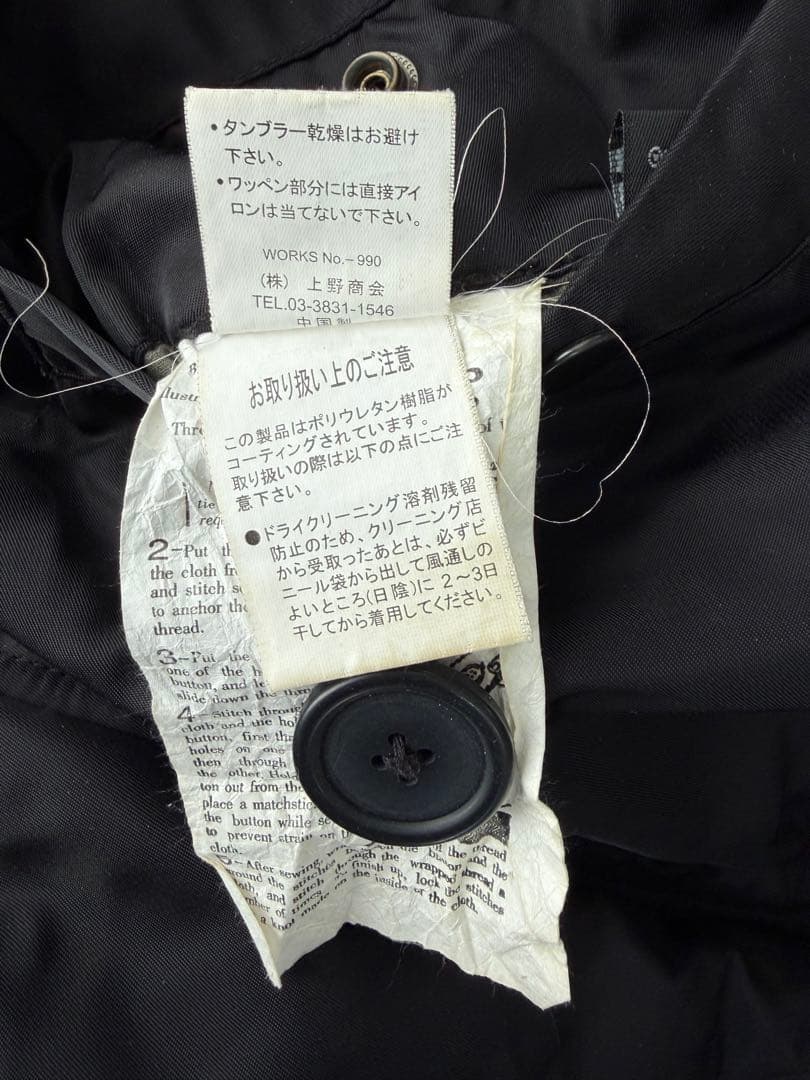 ・タンブラー乾燥はお避け
下さい。
・ワッペン部分には直接アイ
ロンは当てないで下さい。
WORKS No.–990
(株) 上野商会
TEL.03-3831-1546
中国製
お取り扱い上のご注意
この製品はポリウレタン樹脂が
コーティングされています。
取り扱いの際は以下の点にご注
意下さい。
●ドライクリーニング溶剤残留
防止のため、クリーニング店
から受取ったあとは、必ずビ
ニール袋から出して風通しの
よいところ(日陰)に 2〜3日
干してから着用してください。
2–Put
the cloth
and stitch
to anchor the
thread.
3–Put the
one of the
button, and
slide down
4– Stitch through
cloth and the
button, first
holes on one
then through
the other. Hold
ton out from the
place a matchstick
the button while
to prevent strain on
cloth.
5–After sewing, thread
around the stitches the and the
and stitch through the wrapped thread a
number of times. finish up, lock the stitches
a knot made on the inside of the cloth.